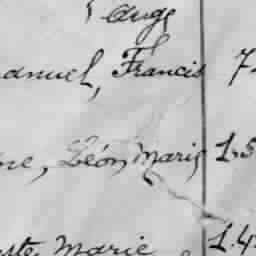 Ange
anuel, Francis 7
ne, Léon Marie 1.5
ste Marie 1.4